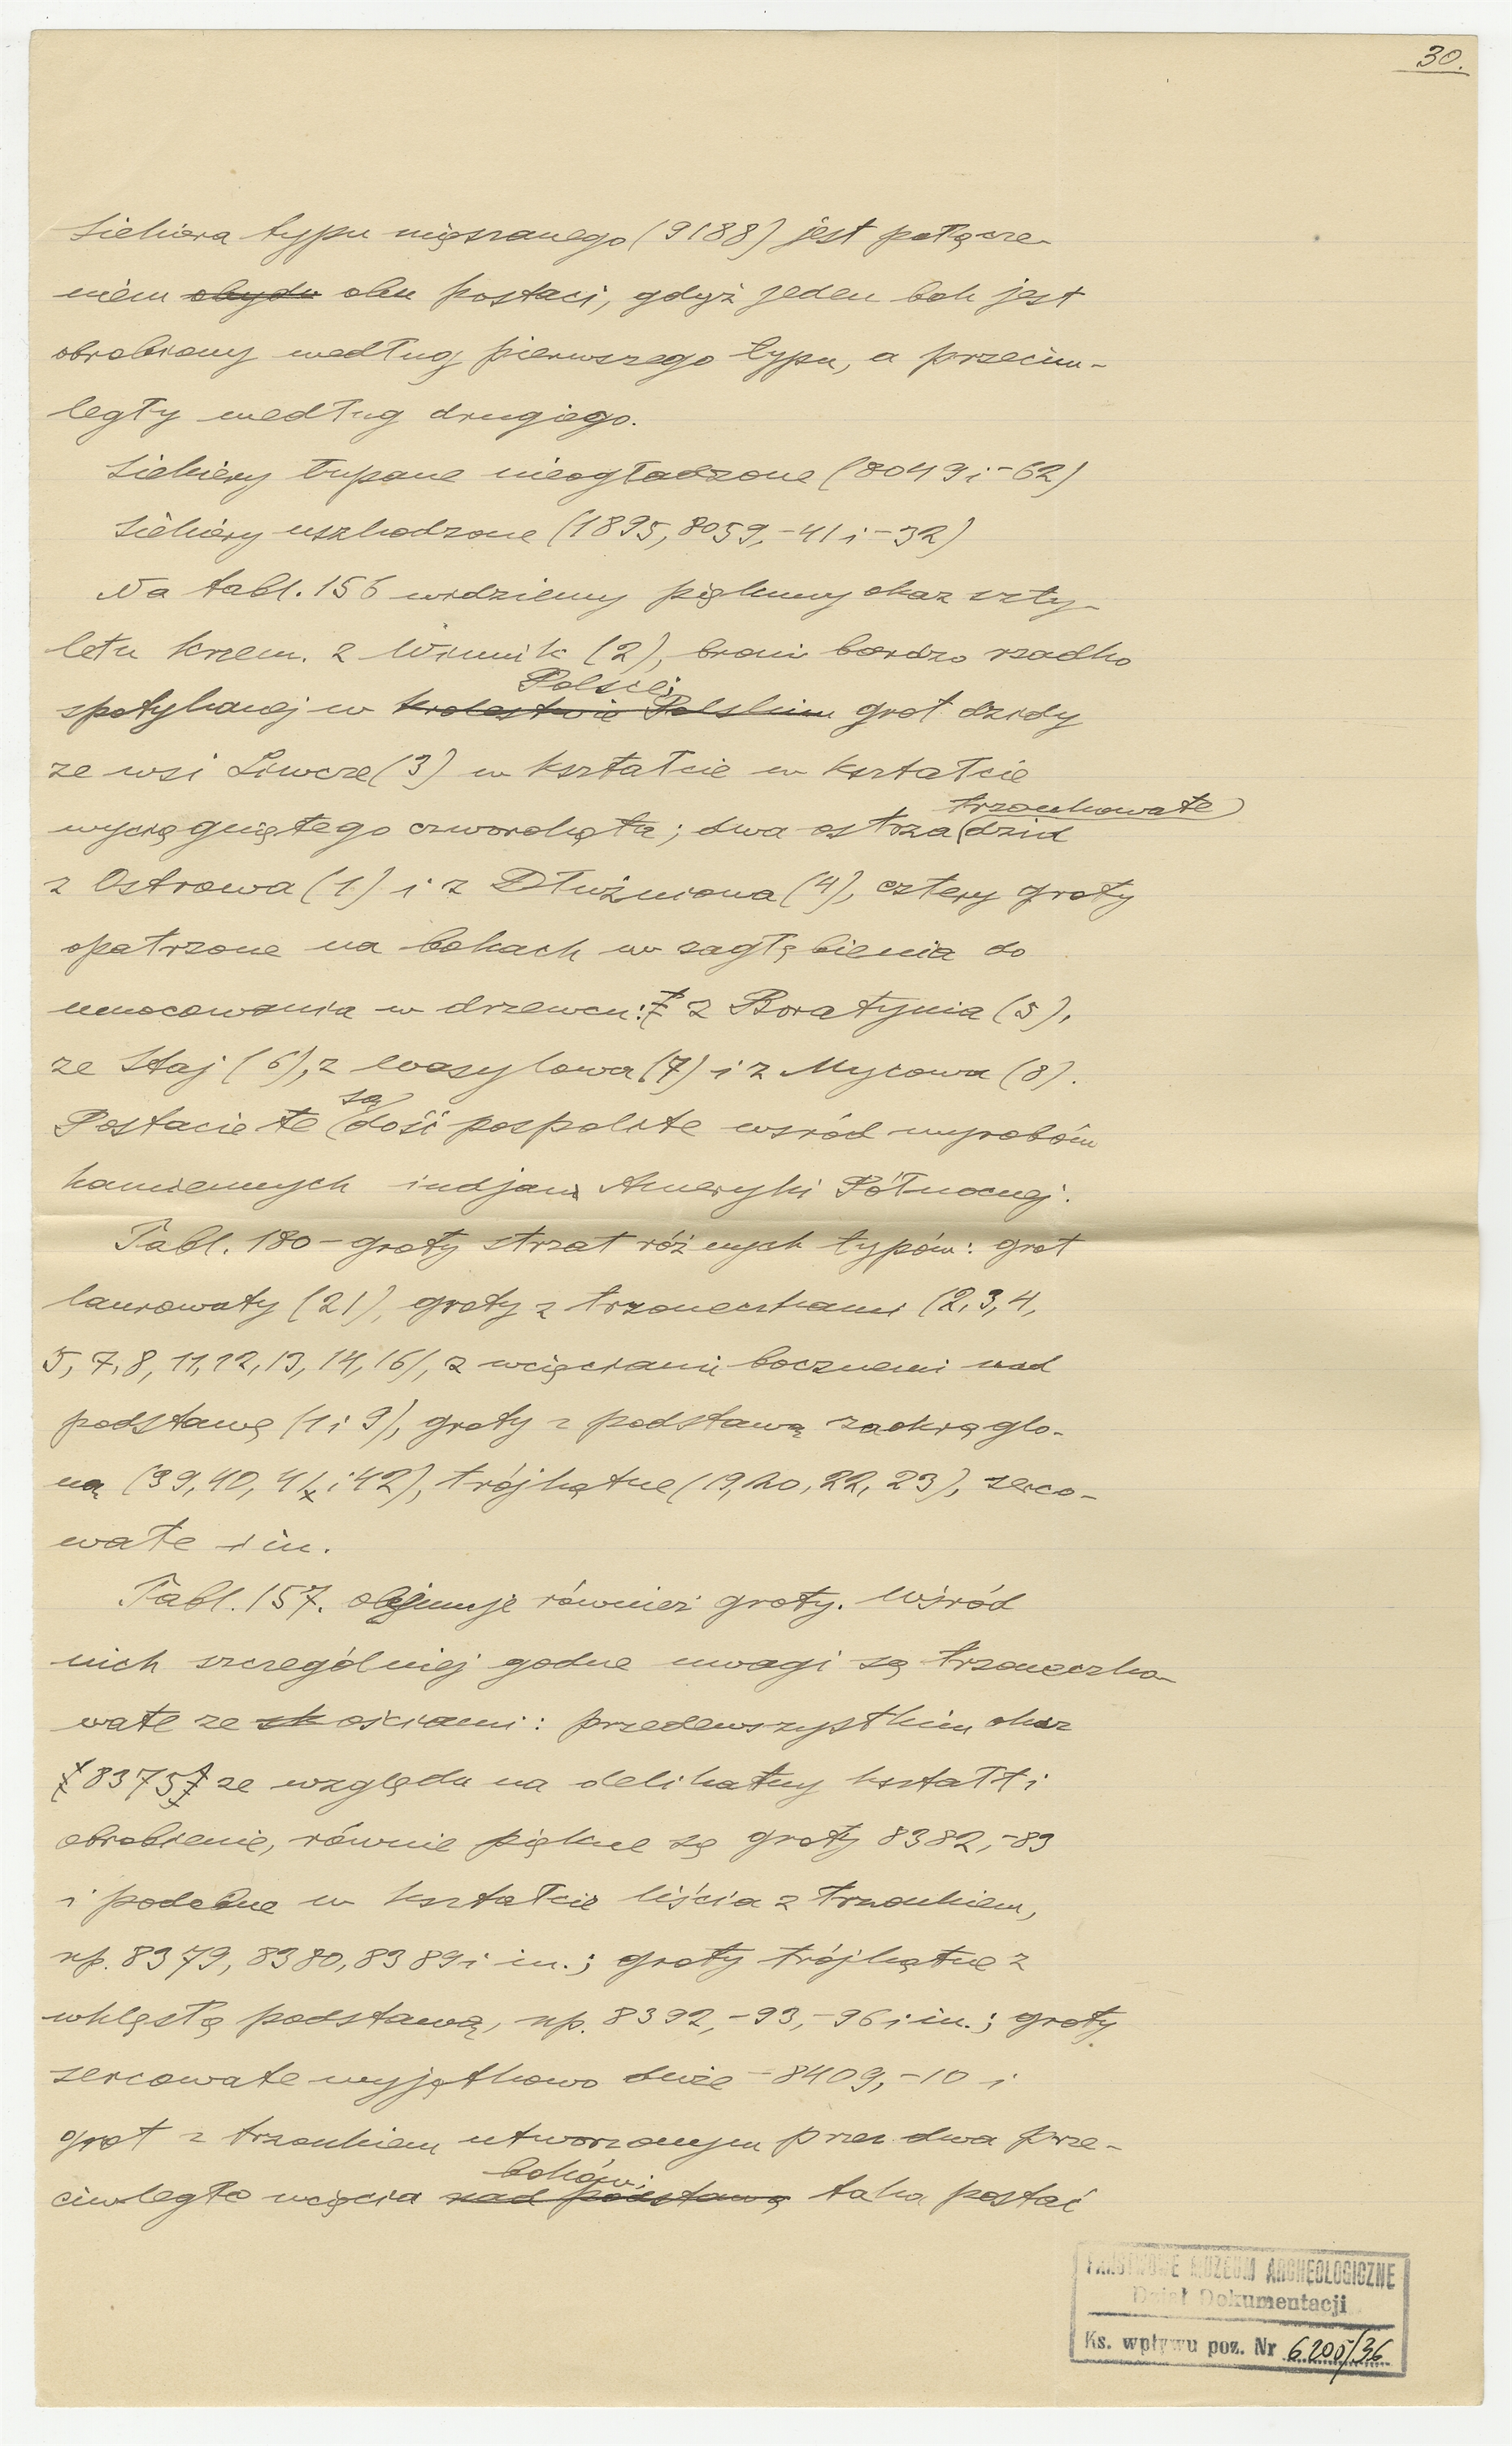 30.
Siekiera typu mięszanego (9188) jest połącze-
niem obydu obu postaci, gdyż jeden bok jest
obrobiony według pierwszego typu, a przeciw-
legły według drugiego.
Siekiery łupane nieogładzone (8049 i -62)
Siekiery uszkodzone (1895, 8059, -41 i -32)
Na tabl. 156 widzimy piękny okaz szty-
letu krzem. z Winnik (2), broni bardzo rzadko
Polsce;
spotykanej w Królestwie Polskim grot dzidy
ze wsi Liwcze (3) w kształcie w kształcie
trzonkowate
wyciągniętego czworokąta; dwa ostrza (dzid
z Ostrowa (1) i z Dłużniowa (4), cztery groty
opatrzone na bokach w zagłębienia do
umocowania w drzewcu: z Boratynia (5),
ze Staj (6), z Wasylowa (7) i z Mycowa (8).
są
Postacie te (dość pospolite wśród wyrobów
kamiennych indjan Ameryki Północnej.
Tabl. 180 - groty strzał różnych typów: grot
laurowaty (21), groty z trzoneczkami (2, 3, 4,
5, 7, 8, 11, 12, 13, 14, 16), z wcięciami bocznemi nad
podstawą (1 i 9), groty z podstawą zaokrąglo-
ną (39, 40, 41 i 42), trójkątne (19, 20, 22, 23), serco-
wate i in.
Tabl. 157. obejmuje również groty. Wśród
nich szczególniej godne uwagi są trzoneczko-
wate ze ościami: przedewszystkim okaz
8375 ze względu na delikatny kształt i
obrobienie, równie piękne są groty 8382, -83
i podobne w kształcie liścia z trzonkiem,
np. 8379, 8380, 8389 i in.; groty trójkątne z
wklęsłą podstawą, np. 8392, -93, -96 i in.; groty
sercowate wyjątkowo duże - 8409, -10 i
grot z trzonkiem utworzonym przez dwa prze-
boków;
ciwległe wcięcia nad podstawą taka postać
PAŃSTWOWE MUZEUM ARCHEOLOGICZNE
Dział Dokumentacji
Ks. wpływu poz. Nr 6200/36